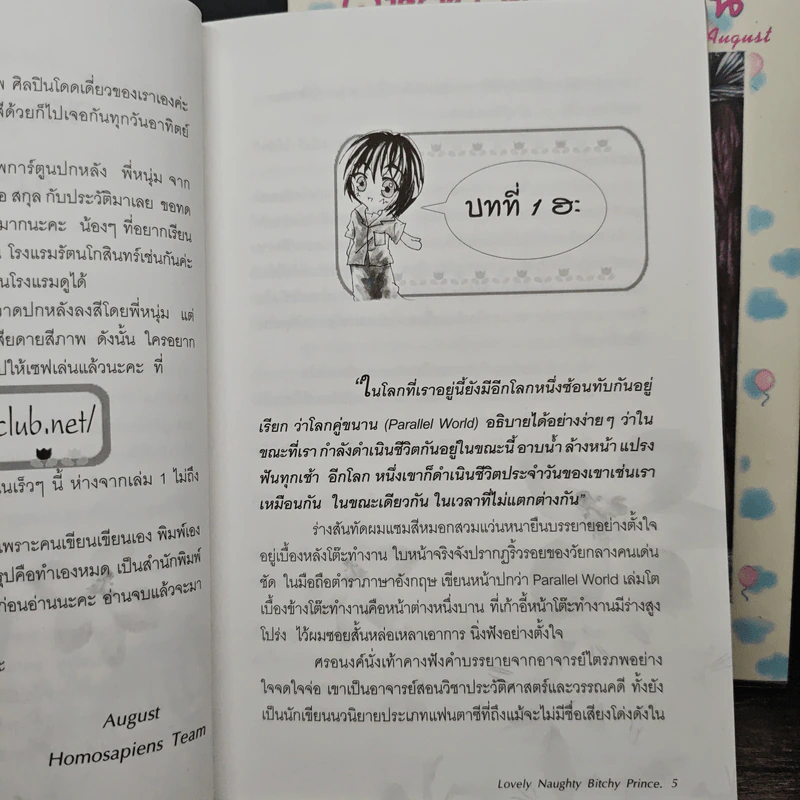 August
ศิลปินโดดเดี่ยวของเราเองค่ะ
ด้วยก็ไปเจอกันทุกวันอาทิตย์
พการ์ตูนปกหลัง พี่หนุ่ม จาก
อ สกุล กับประวัติมาเลย ขอทด
มากนะคะ น้องๆ ที่อยากเรียน
โรงแรมรัตนโกสินทร์เช่นกันค่ะ
นโรงแรมดูได้
าดปกหลังลงสีโดยพี่หนุ่ม แต่
สียดายสีภาพ ดังนั้น ใครอยาก
ปให้เซฟเล่นแล้วนะคะ ที่
club.net/
นเร็วๆ นี้ ห่างจากเล่ม 1 ไม่ถึง
เพราะคนเขียนเขียนเอง พิมพ์เอง
รุปคือทำเองหมด เป็นสำนักพิมพ์
ก่อนอ่านนะคะ อ่านจบแล้วจะมา
ะ
August
Homosapiens Team
บทที่ 1 ฮะ
“ในโลกที่เราอยู่นี้ยังมีอีกโลกหนึ่งซ้อนทับกันอยู่
เรียก ว่าโลกคู่ขนาน (Parallel World) อธิบายได้อย่างง่ายๆ ว่าใน
ขณะที่เรา กำลังดำเนินชีวิตกันอยู่ในขณะนี้ อาบน้ำ ล้างหน้า แปรง
ฟันทุกเช้า อีกโลก หนึ่งเขาก็ดำเนินชีวิตประจำวันของเขาเช่นเรา
เหมือนกัน ในขณะเดียวกัน ในเวลาที่ไม่แตกต่างกัน”
ร่างสันทัดผมแซมสีหมอกสวมแว่นหนายืนบรรยายอย่างตั้งใจ
อยู่เบื้องหลังโต๊ะทำงาน ใบหน้าจริงจังปรากฏริ้วรอยของวัยกลางคนเด่น
ชัด ในมือถือตำราภาษาอังกฤษ เขียนหน้าปกว่า Parallel World เล่มโต
เบื้องข้างโต๊ะทำงานคือหน้าต่างหนึ่งบาน ที่เก้าอี้หน้าโต๊ะทำงานมีร่างสูง
โปร่ง ไว้ผมซอยสั้นหล่อเหลาเอาการ นิ่งฟังอย่างตั้งใจ
ศรอนงค์นั่งเท้าคางฟังคำบรรยายจากอาจารย์ไตรภพอย่าง
ใจจดใจจ่อ เขาเป็นอาจารย์สอนวิชาประวัติศาสตร์และวรรณคดี ทั้งยัง
เป็นนักเขียนนวนิยายประเภทแฟนตาซีที่ถึงแม้จะไม่มีชื่อเสียงโด่งดังใน
Lovely Naughty Bitchy Prince. 5